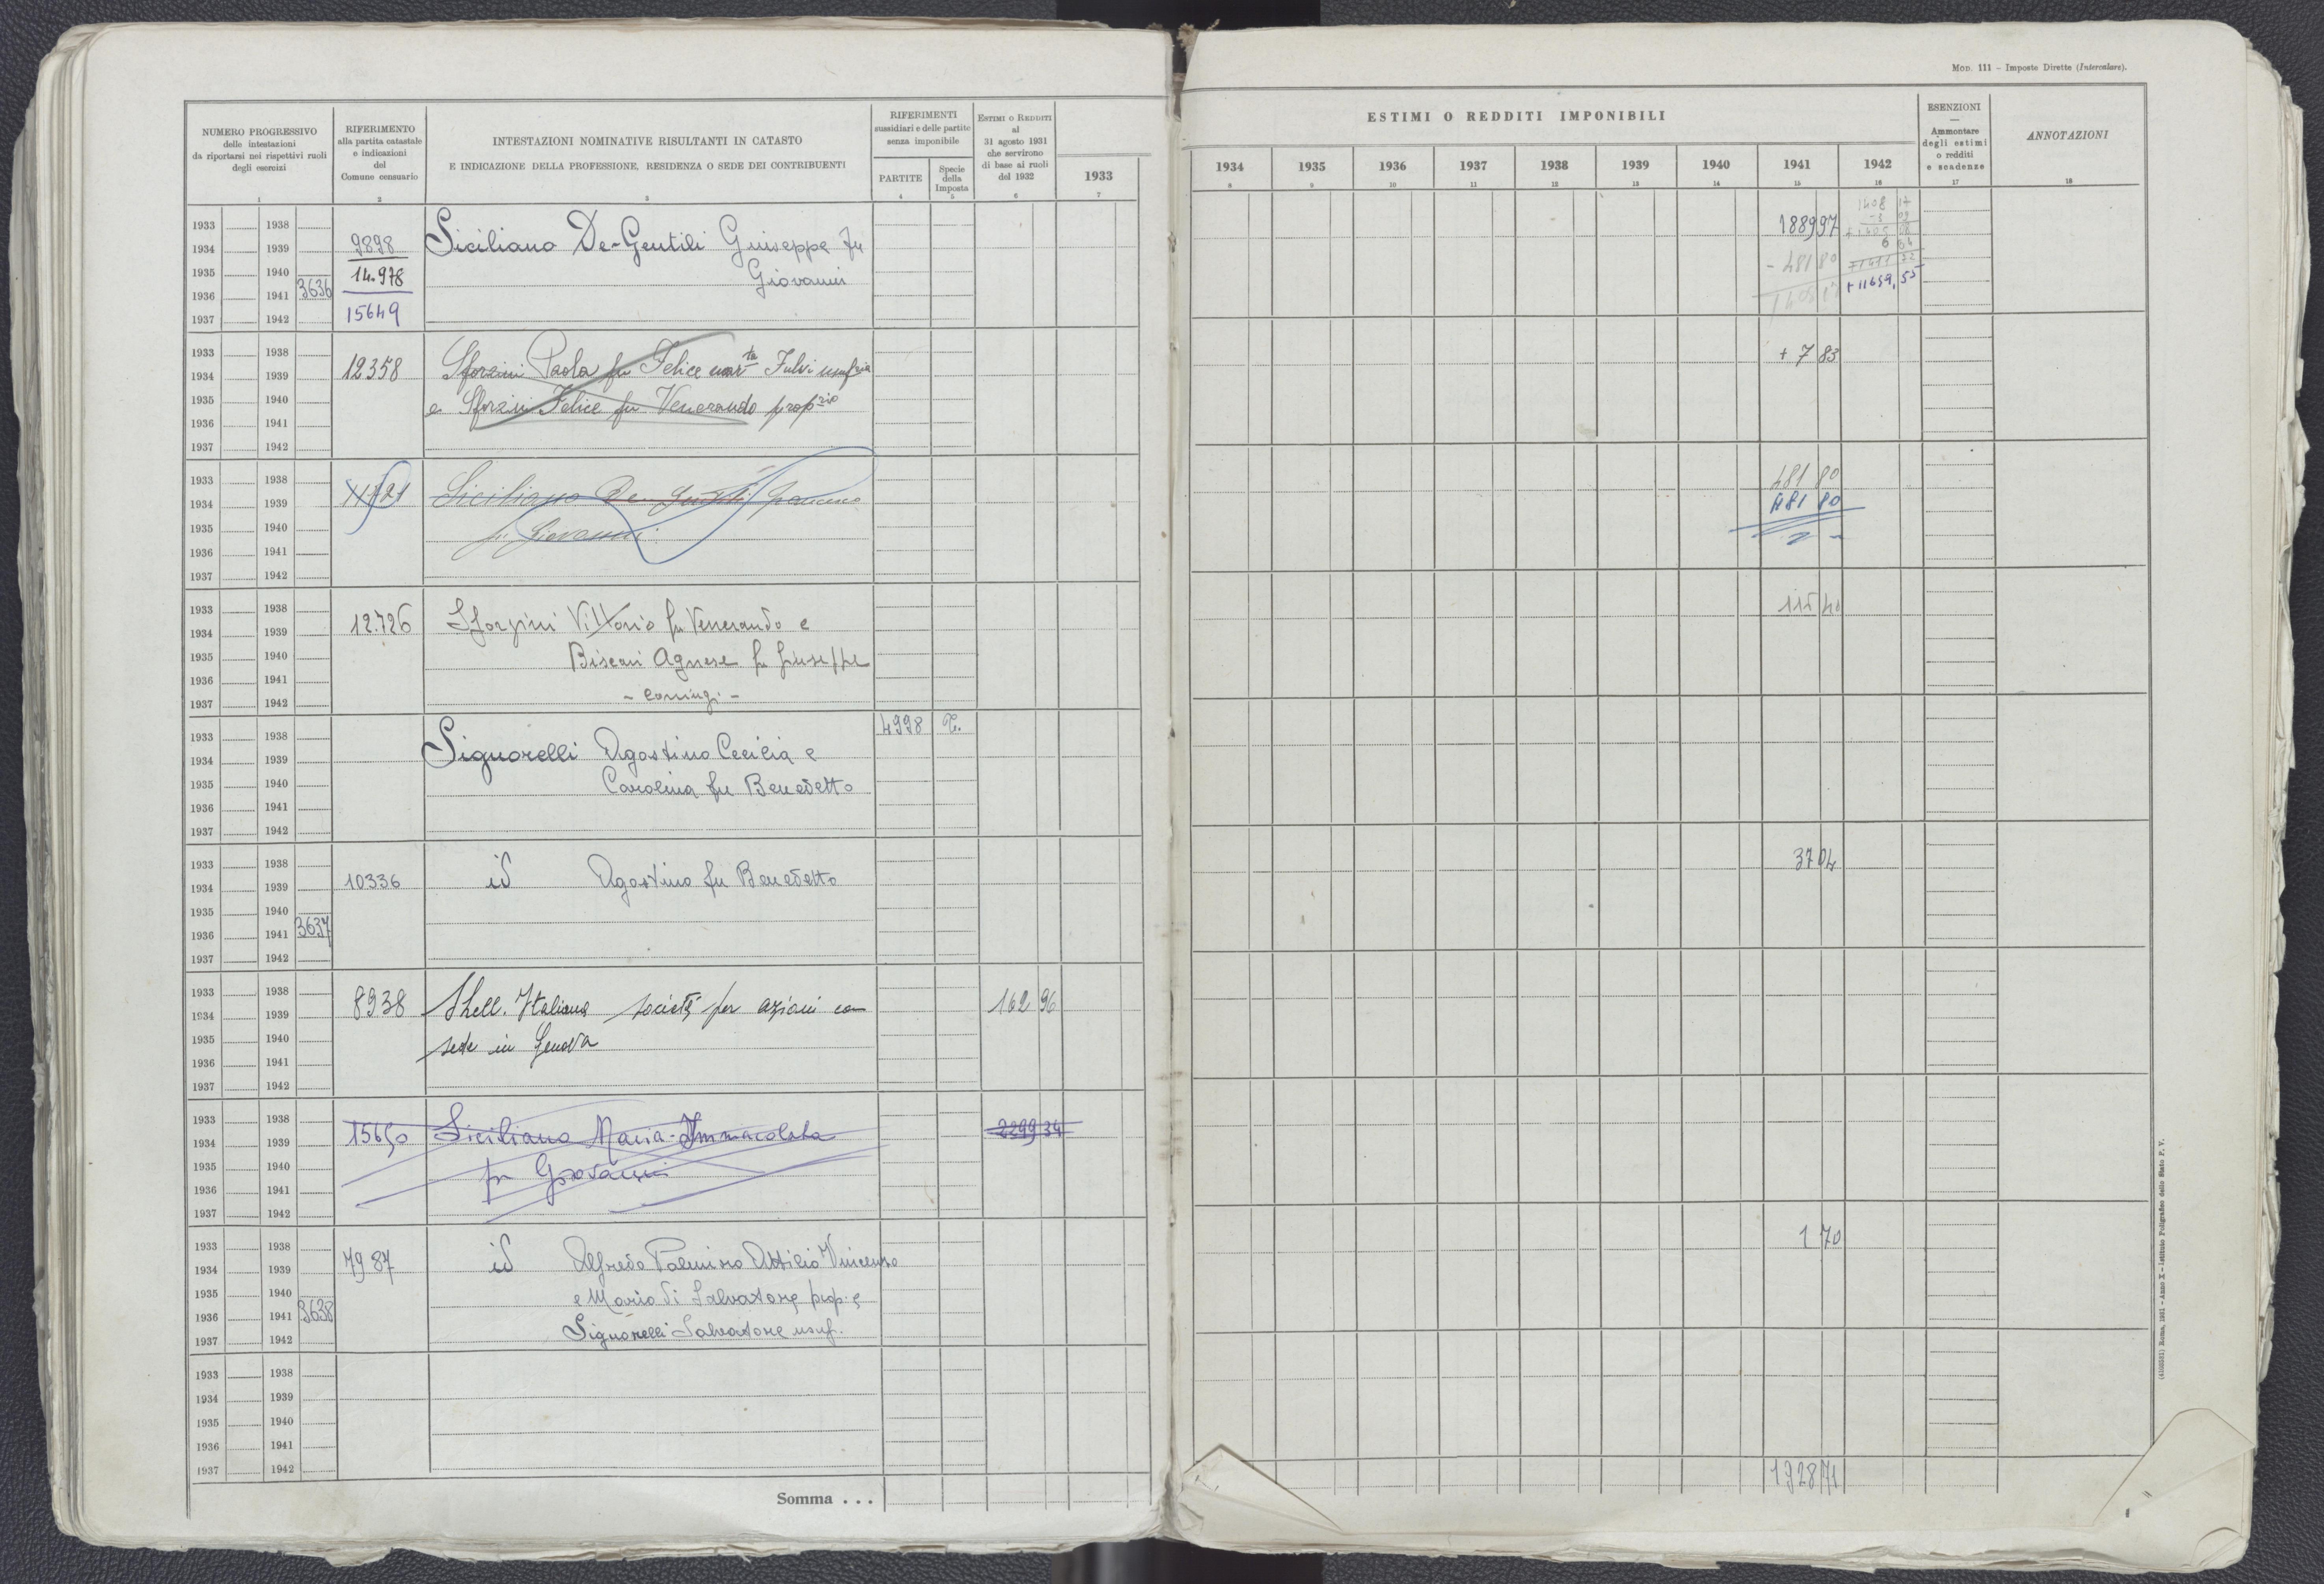 Mod. 111 – Imposte Dirette (Intercalare).
NUMERO PROGRESSIVO
delle intestazioni
da riportarsi nei rispettivi ruoli
degli esercizi
1
RIFERIMENTO
alla partita catastale
e indicazioni
del
Comune censuario
2
INTESTAZIONI NOMINATIVE RISULTANTI IN CATASTO
E INDICAZIONE DELLA PROFESSIONE, RESIDENZA O SEDE DEI CONTRIBUENTI
3
RIFERIMENTI
sussidiari e delle partite
senza imponibile
PARTITE
4
Specie
della
Imposta
5
Estimi o Redditi
al
31 agosto 1931
che servirono
di base ai ruoli
del 1932
6
1933
7
ESTIMI O REDDITI IMPONIBILI
1934 1935 1936 1937 1938 1939 1940 1941 1942
8 9 10 11 12 13 14 15 16
ESENZIONI
—
Ammontare
degli estimi
o redditi
e scadenze
17
ANNOTAZIONI
18
1933 1938
1934 1939 9898 Siciliano De-Gentili Giuseppe fu 1889 97
1935 1940 14.978 Giovanni - 481 80
1936 1941 3636 + 11659,55
1937 1942 15649
1933 1938 + 7 83
1934 1939 12358 Sforzini Paola fu Felice mar ta Fulvi
1935 1940 e Sforzini Felice fu Venerando prop rio
1936 1941
1937 1942
1933 1938 481 80
1934 1939 Siciliano De Gentili Francesco 481 80
1935 1940 fu Giovanni
1936 1941
1937 1942
1933 1938 115 40
1934 1939 12.726 Sforzini Vittorio fu Venerando e
1935 1940 Biscari Agnese fu Giuseppe
1936 1941
1937 1942 - coniugi -
1933 1938 4998
1934 1939 Signorelli Agostino Cecilia e
1935 1940 Carolina fu Benedetto
1936 1941
1937 1942
1933 1938 37 04
1934 1939 10336 id Agostino fu Benedetto
1935 1940
1936 1941 3637
1937 1942
1933 1938
1934 1939 8938 Shell. Italiana società per azioni con 162 96
1935 1940 sede in Genova
1936 1941
1937 1942
1933 1938
1934 1939 15650 Siciliano Maria-Immacolata 2299 34
1935 1940 fu Giovanni
1936 1941
1937 1942
1933 1938 1 70
1934 1939 7987 id Alfredo Palmiro Attilio Vincenzo
1935 1940 e Mario di Salvatore prop. e
1936 1941 3638
1937 1942 Signorelli Salvatore usuf.
1933 1938
1934 1939
1935 1940
1936 1941
1937 1942
Somma . . . 1928 71
(4100381) Roma, 1931 – Anno X – Istituto Poligrafico dello Stato P. V.